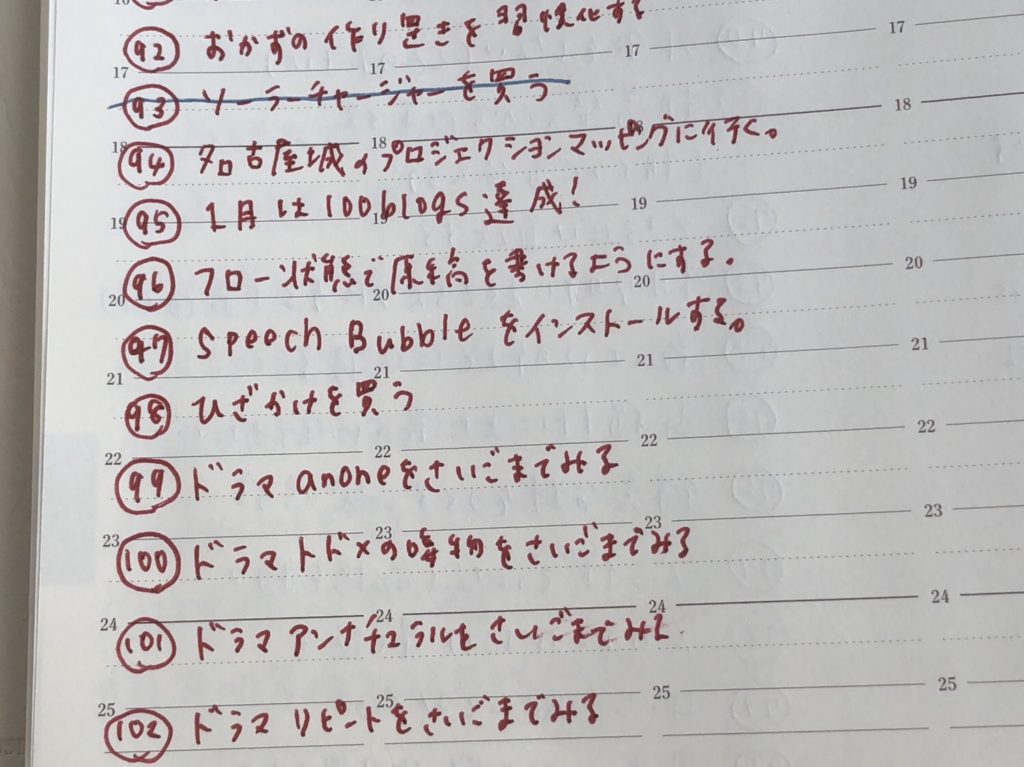 92 おかずの作り置きを習慣化する
17 17 17 17
93 ソーラーチャージャーを買う
18 18 18 18
94 名古屋城のプロジェクションマッピングに行く。
19 19 19 19
95 1月は100blogs達成!
20 20 20 20
96 フロー状態で原稿を書けるようにする。
97 Speech Bubble をインストールする。
21 21 21 21
98 ひざかけを買う
22 22 22 22
99 ドラマ anoneをさいごまでみる
23 23 23 23
100 ドラマ トドメの接吻をさいごまでみる
24 24 24 24
101 ドラマ アンナチュラルをさいごまでみる
25 25 25 25
102 ドラマ リピートをさいごまでみる